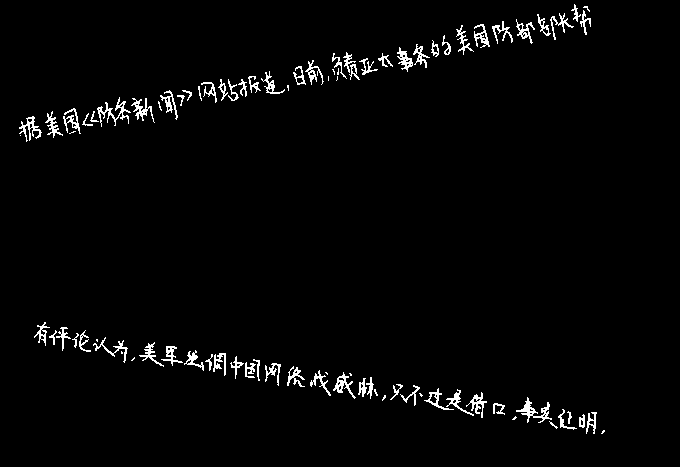 据美国《防务新闻》网站报道,日前,负责亚太事务的美国防部部长帮
有评论认为,美军强调中国网络战威胁,只不过是借口,事实证明,